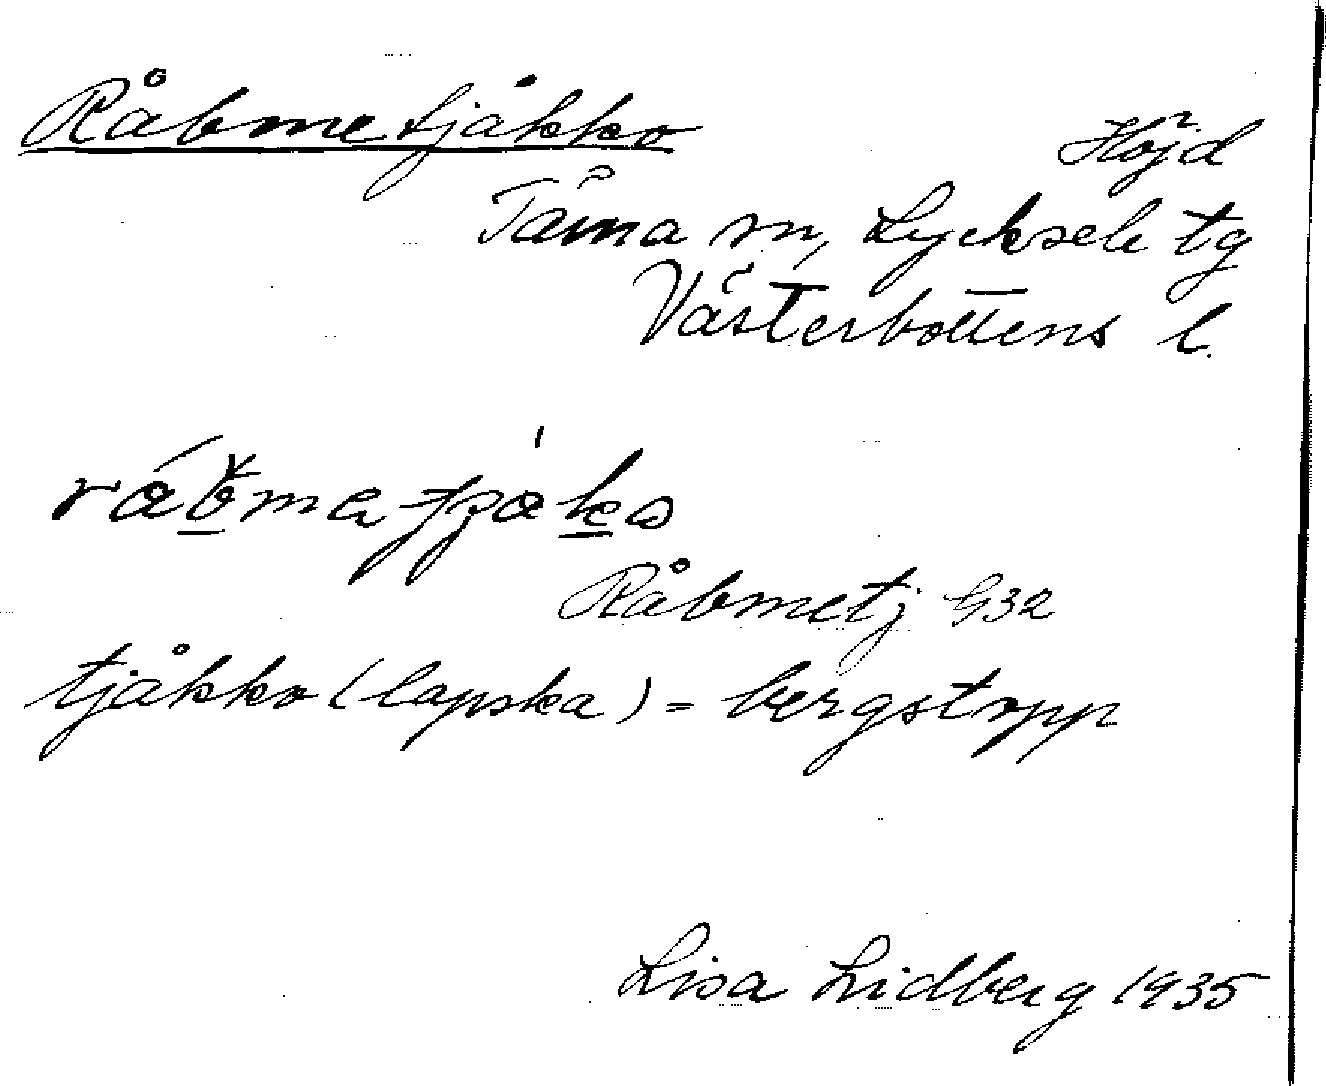 Råbmetjåkko Höjd
Tärna sn, Lycksele tg
Västerbottens l.
Råbmetj G32
tjåkko (lapska) = bergstopp
Lisa Lidberg 1935